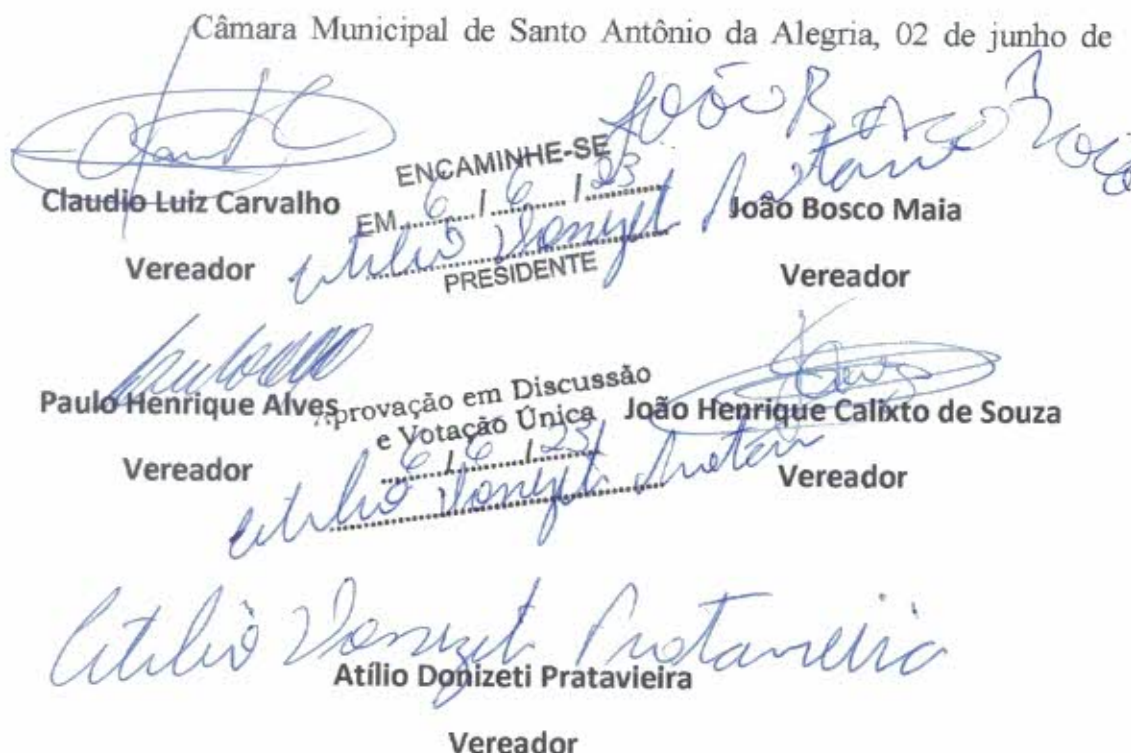 Câmara Municipal de Santo Antônio da Alegria, 02 de junho de
João Bosco
ENCAMINHE-SE
EM 6 / 6 / 23
Atilio Donizeti
PRESIDENTE
Claudio Luiz Carvalho
Vereador
João Bosco Maia
Vereador
Aprovação em Discussão
e Votação Única
6 / 6 / 23
Atilio Donizeti
Paulo Henrique Alves
Vereador
João Henrique Calixto de Souza
Vereador
Atilio Donizeti Pratavieira
Atílio Donizeti Pratavieira
Vereador